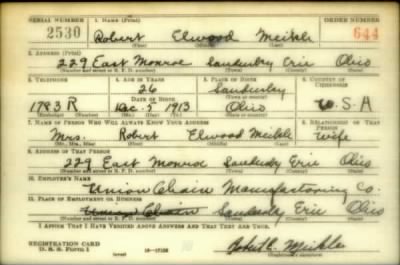 SERIAL NUMBER 1. NAME (Print) ORDER NUMBER
2530 Robert Elwood Meikle 644
(First) (Middle) (Last)
2. ADDRESS (Print)
229 East Monroe Sandusky Erie Ohio
(Number and street or R. F. D. number) (Town) (County) (State)
3. TELEPHONE 4. AGE IN YEARS 5. PLACE OF BIRTH 6. COUNTRY OF CITIZENSHIP
26 Sandusky
1783 R DATE OF BIRTH
Dec. 5 1913 Ohio U.S.A
7. NAME OF PERSON WHO WILL ALWAYS KNOW YOUR ADDRESS 8. RELATIONSHIP OF THAT PERSON
Mrs. Robert Elwood Meikle Wife
(Mr., Mrs., Miss) (First) (Middle) (Last)
9. ADDRESS OF THAT PERSON
229 East Monroe Sandusky Erie Ohio
(Number and street or R. F. D. number) (Town) (County) (State)
10. EMPLOYER'S NAME
Union Chain Manufactoring Co.
11. PLACE OF EMPLOYMENT OR BUSINESS
Union Chain Sandusky Erie Ohio
(Number and street or R. F. D. number) (Town) (County) (State)
I AFFIRM THAT I HAVE VERIFIED ABOVE ANSWERS AND THAT THEY ARE TRUE.
REGISTRATION CARD
D. S. S. FORM 1
Robert E. Meikle
(Registrant's signature)